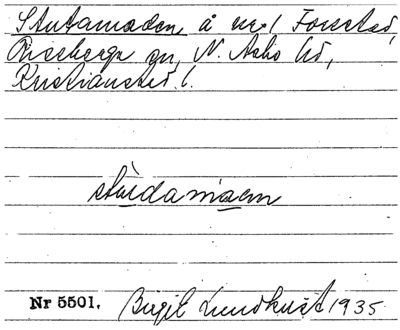 Stutamaden å nr 1 Forestad,
Riseberga sn, N. Åsbo hd,
Kristianstad l.
stùdamaen
Nr 5501. Birgit Lundkvist 1935